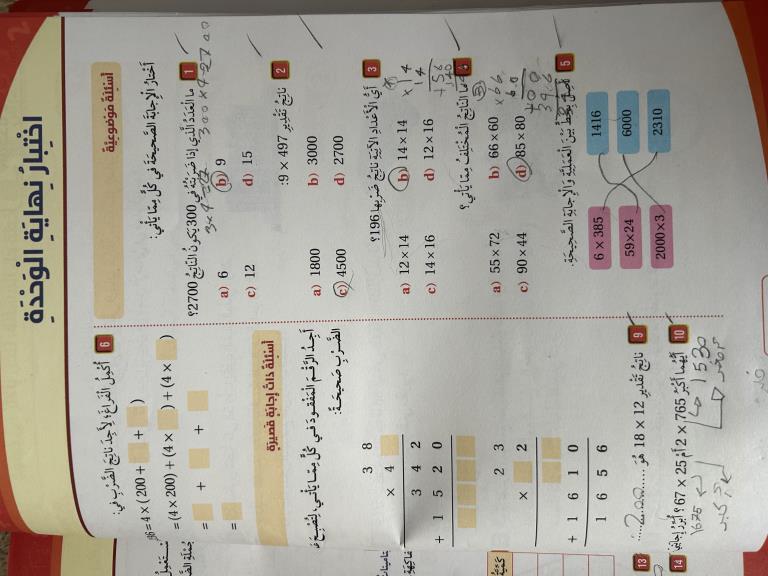 اِخْتِبارُ نِهايَةِ الْوَحْدَةِ
أَسْئِلَةٌ مَوْضوعِيَّةٌ
أَخْتارُ الْإِجابَةَ الصَّحيحَةَ في كُلٍّ مِمّا يَأْتي:
1 ما الْعَدَدُ الَّذي إِذا ضَرَبْتُهُ في 300 يَكونُ النّاتِجُ 2700؟
a) 6 b) 9
c) 12 d) 15
2 ناتِجُ تَقْديرِ 497 × 9:
a) 1800 b) 3000
c) 4500 d) 2700
3 أَيُّ الْأَعْدادِ الْآتِيَةِ ناتِجُ ضَرْبِها 196؟
a) 12 × 14 b) 14 × 14
c) 14 × 16 d) 12 × 16
ما النّاتِجُ الْمُخْتَلِفُ مِمّا يَأْتي؟
a) 55 × 72 b) 66 × 60
c) 90 × 44 d) 85 × 80
5 أَصِلُ بِخَطٍّ بَيْنَ الْعَمَلِيَّةِ وَالْإِجابَةِ الصَّحيحَةِ.
6 × 385 1416
59×24 6000
2000×3 2310
6 أُكْمِلُ الْفَراغَ؛ لِأَجِدَ ناتِجَ الضَّرْبِ في:
= 4 × (200 + + )
= (4 × 200) + (4 × ) + (4 × )
= + +
=
أَسْئِلَةٌ ذاتُ إِجابَةٍ قَصيرَةٍ
أَجِدُ الرَّقْمَ الْمَفْقودَ في كُلٍّ مِمّا يَأْتي، لِتُصْبِحَ
الضَّرْبِ صَحيحَةً:
3 8
× 4
3 4 2
+ 1 5 2 0
2 3
× 2
+ 1 6 1 0
1 6 5 6
9 ناتِجُ تَقْديرِ 12 × 18 هُوَ 200
10 أَيُّهُما أَكْبَرُ 765 × 2 أَمْ 25 × 67؟
1675 1530
13
14